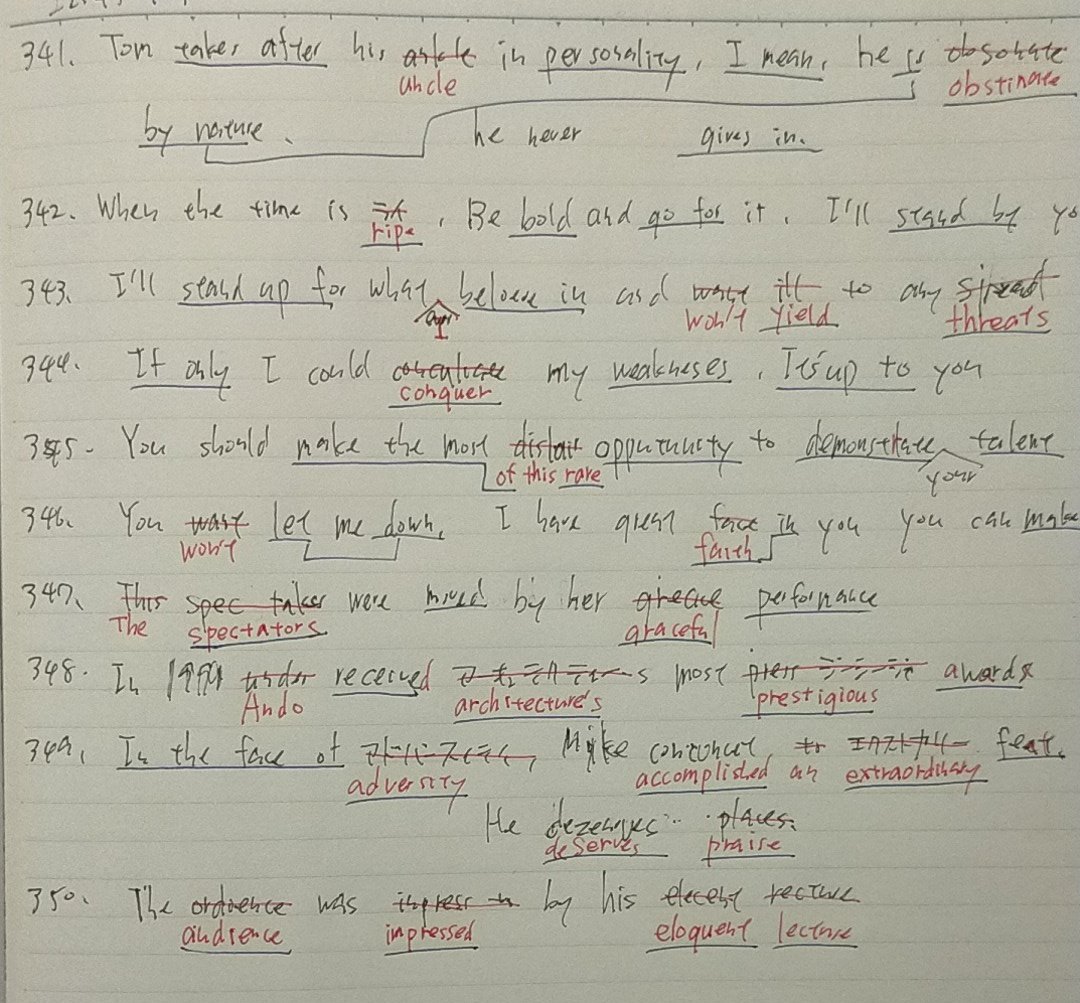 341. Tom takes after his uncle in personality, I mean, he is obstinate
by nature. he never gives in.
342. When the time is ripe, Be bold and go for it. I'll stand by yo
343. I'll stand up for what I beloeve in and won't yield to any threats
344. If only I could conquer my weaknesses. It's up to you
345. You should make the most of this rare oppurtunity to demonstrate your talent
346. You won't let me down. I have great faith in you you can make
347. The spectators were moved by her graceful performance
348. In 1991 Ando received architecture's most prestigious awards
349. In the face of adversity, Mike accomplished an extraordinary feat.
He deserves praise
350. The audience was impressed by his eloquent lecture